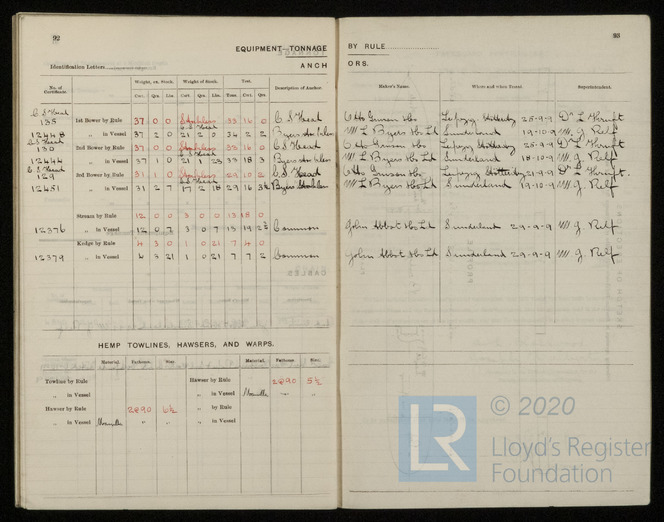 92
EQUIPMENT TONNAGE
Identification Letters
ANCH
No. of Certificate. Weight, ex. Stock. Weight of Stock. Test. Description of Anchor.
Cwt. Qrs. Lbs. Cwt. Qrs. Lbs. Tons. Cwt. Qrs.
C S Head
135 1st Bower by Rule 37 0 0 Stockless 33 16 0 C S Head
12448 „ in Vessel 37 2 0 34 2 2 Byers Stockless
C S Head
130 2nd Bower by Rule 37 0 0 Stockless 33 16 0 C S Head
12444 „ in Vessel 37 1 0 21 1 23 33 18 3 Byers Stockless
C S Head
129 3rd Bower by Rule 31 1 0 Stockless 29 10 2 C S Head
12451 „ in Vessel 31 2 7 17 2 18 29 16 3½ Byers Stockless
Stream by Rule 12 0 0 3 0 0 13 18 0
12376 „ in Vessel 12 0 7 3 0 7 13 19 2½ Common
Kedge by Rule 4 3 0 1 0 21 7 4 0
12379 „ in Vessel 4 3 21 1 0 21 7 7 2 Common
HEMP TOWLINES, HAWSERS, AND WARPS.
Material. Fathoms. Size. Material. Fathoms. Size.
Towline by Rule Hawser by Rule 2890 5½
„ in Vessel „ in Vessel Manilla „ „
Hawser by Rule 2890 6½ „ by Rule
„ in Vessel Manilla „ „ „ in Vessel
93
BY RULE
ORS.
Maker's Name. Where and when Tested. Superintendent.
Otto Gruson & Co Leipzig Stotteritz 25-9-9
W L Byers & Co Ltd Sunderland 19-10-9 W. G. Relf
Otto Gruson & Co Leipzig Stotteritz 25-9-9
W L Byers & Co Ltd Sunderland 18-10-9 W. G. Relf
Otto Gruson & Co Leipzig Stotteritz 21-9-9
W L Byers & Co Ltd Sunderland 19-10-9 W. G. Relf
John Abbot & Co Ltd Sunderland 29-9-9 W. G. Relf
John Abbot & Co Ltd Sunderland 29-9-9 W. G. Relf
© 2020
LR
Lloyd's Register
Foundation